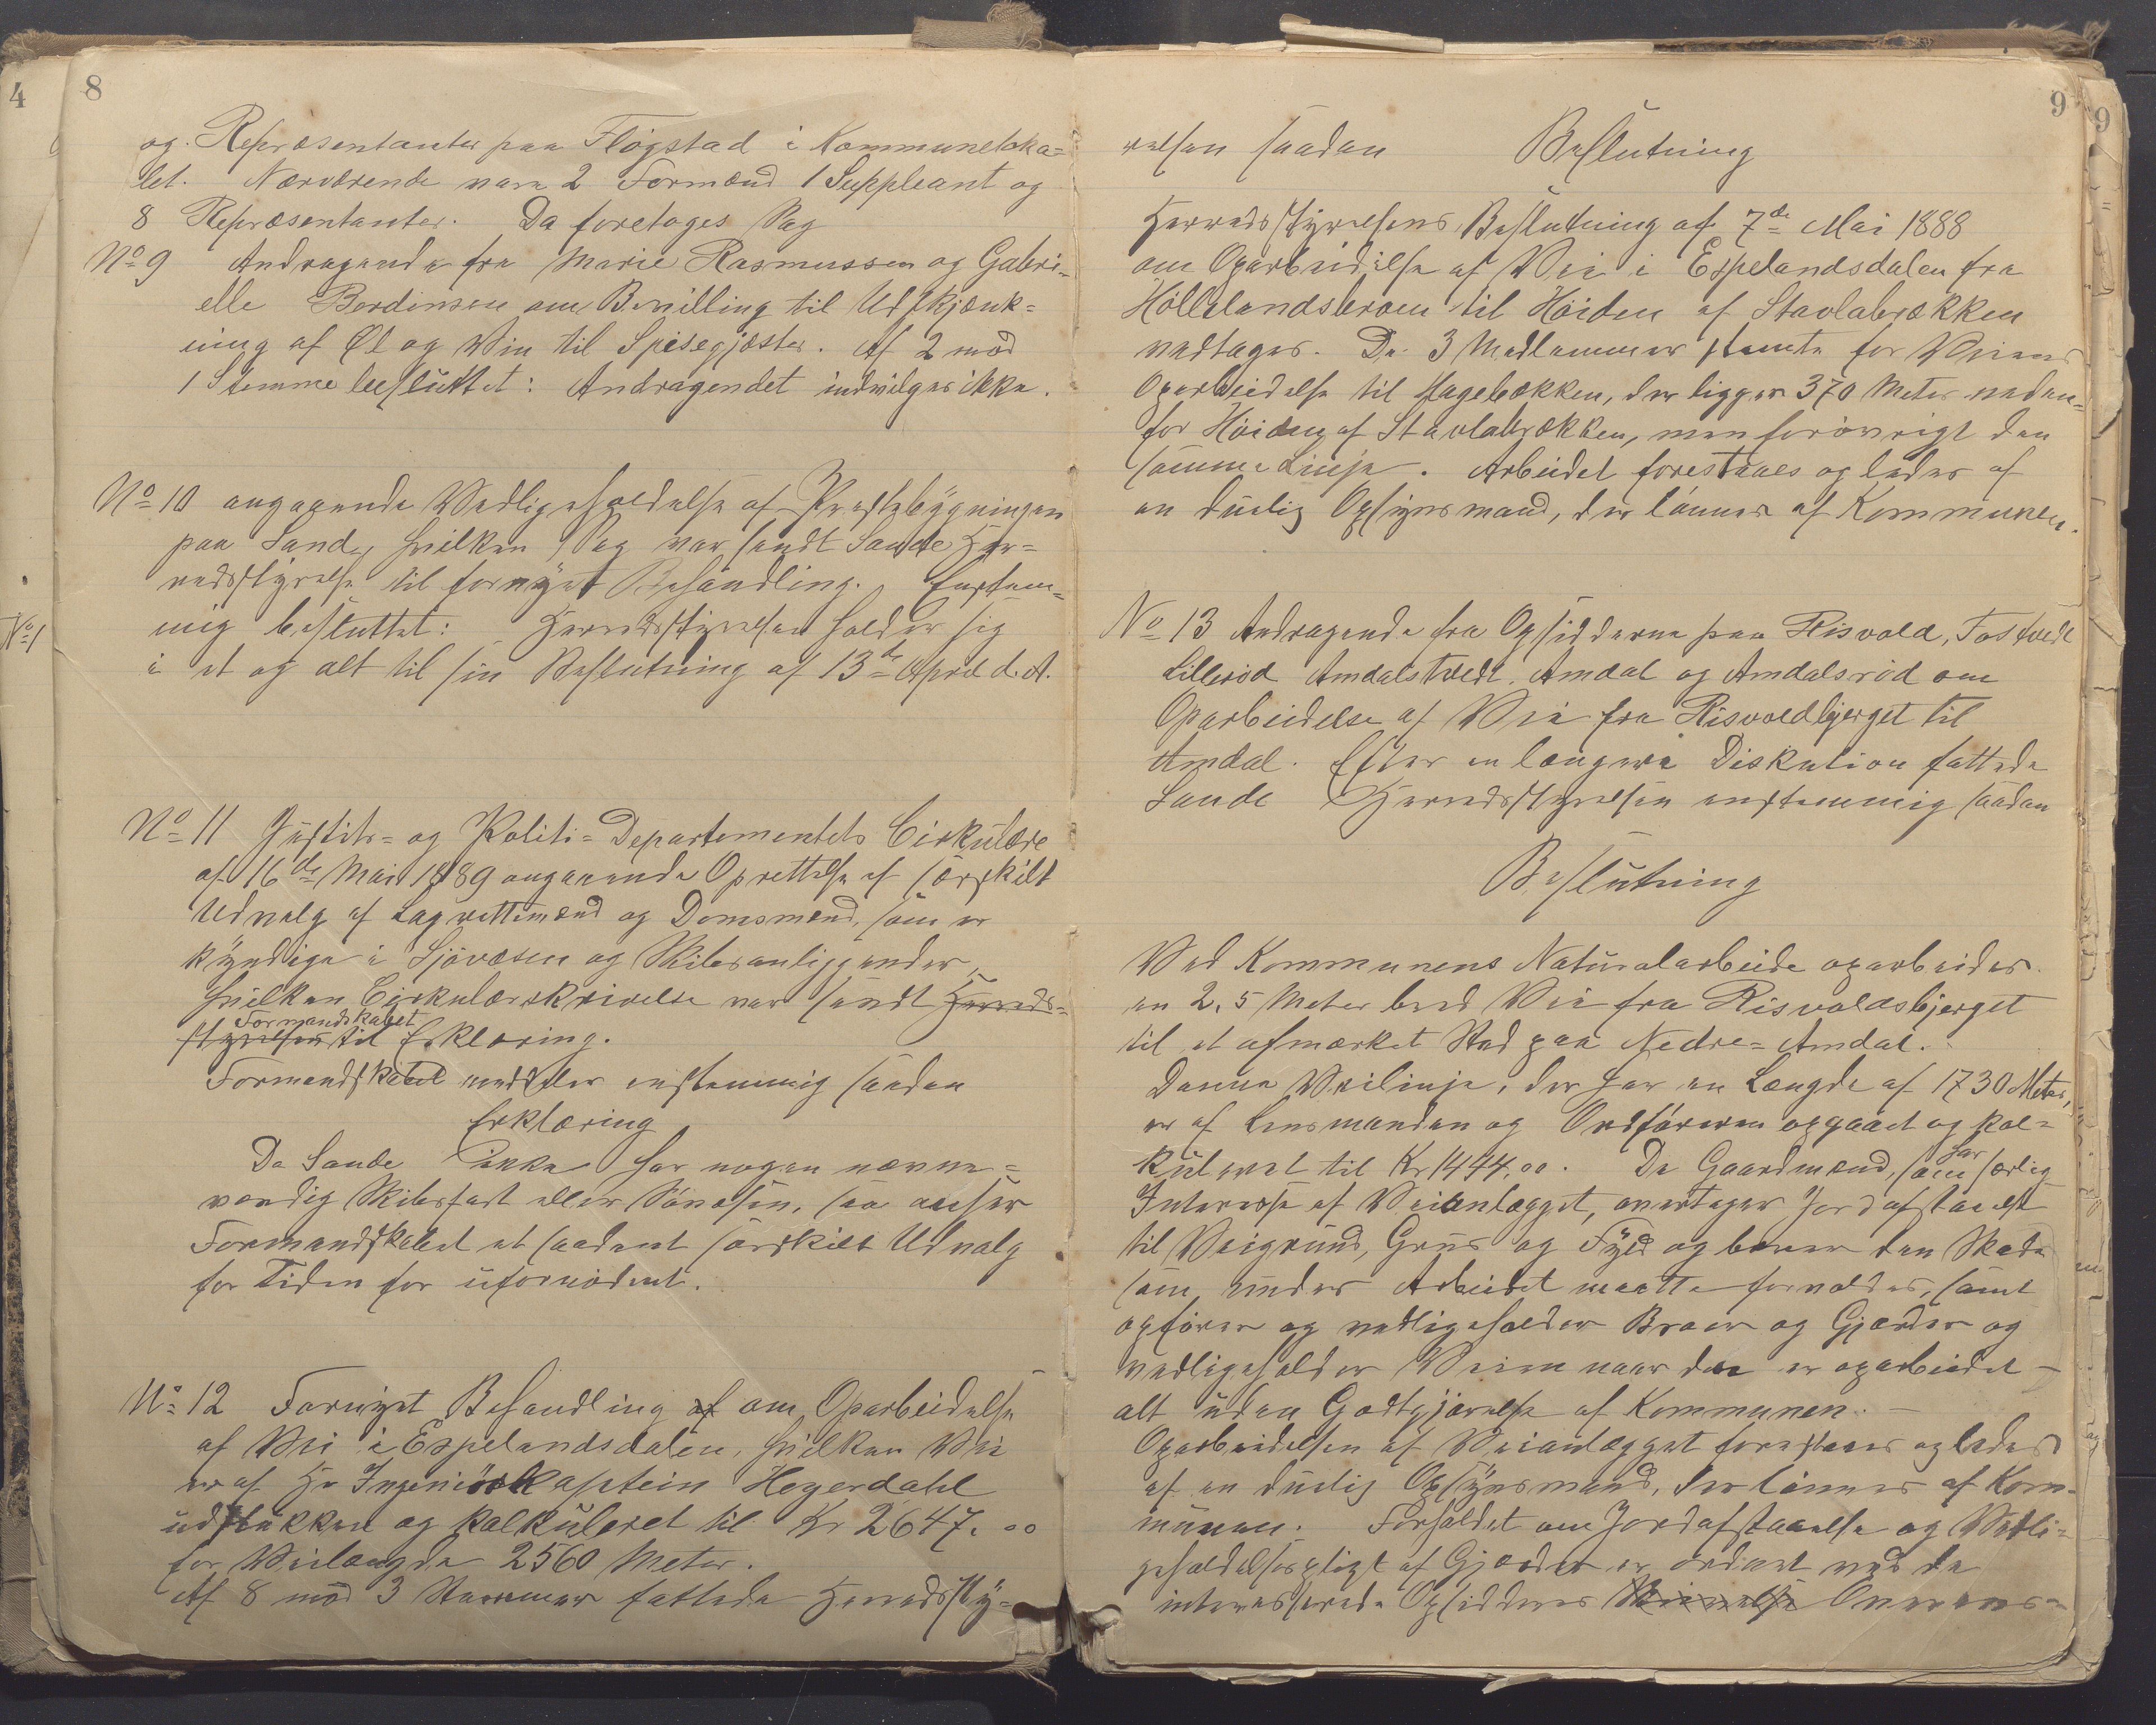 8
og Repræsentanter paa Fløgstad i Kommuneloka=
let. Nærværende vare 2 Formænd 1 Suppleant og
8 Repræsentanter. Da foretoges Sag
No 9 Andragende fra Marie Rasmussen og Gabri=
elle Berdinsen om Bevilling til Udskjænk=
ning af Øl og Vin til Spisegjæster. Af 2 mod
1 Stemme besluttet: Andragendet indvilges ikke.
No 10 angaaende Vedligeholdelse af Præstebygningen
paa Sande, hvilken Sag var sendt Sande Her=
redsstyrelse til fornyet Behandling. Enstem=
mig besluttet: Herredsstyrelsen holder sig
i et og alt til sin Beslutning af 13de April d. A.
No 11 Justits= og Politi=Departementets Cirkulære
af 16de Mai 1889 angaaende Oprettelse af særskilt
Udvalg af Lagrettemænd og Domsmænd, som er
kyndige i Sjøvæsen og Skibsanliggender,
hvilken Cirkulærskrivelse var sendt Herreds=
Formandskabet
styrelsen til Erklæring.
Formandskabet meddeler enstemmig saadan
Erklæring
Da Sande ikke har nogen nævne=
værdig Skibsfart eller Søvæsen, saa anser
Formandskabet et saadant særskilt Udvalg
for Tiden for ufornødent.
No 12 Fornyet Behandling af om Oparbeidelse
af Vei i Espelandsdalen, hvilken Vei
er af Hr Ingeniørkaptein Hegerdahl
udstukken og kalkuleret til Kr 2647.00
for Veilængde 2560 Meter.
Af 8 mod 3 Stemmer fattede Herredssty=
9
relsen saadan Beslutning
Herredsstyrelsens Beslutning af 7de Mai 1888
om Oparbeidelse af Vei i Espelandsdalen fra
Höllelandsbroen til Höiden af Stavlabrækken
vedtages. De 3 Medlemmer stemte for Veiens
Oparbeidelse til Hagebækken, der ligger 370 Meter neden=
for Höiden af Stavlabrækken, men forøvrigt den
samme Linje. Arbeidet forestaaes og ledes af
en duelig Opsynsmand, der lönnes af Kommunen.
No 13 Andragende fra Opsidderne paa Risvold, Tostvedt
Lilleröd Amdalstvedt, Amdal og Amdalsröd om
Oparbeidelse af Vei fra Risvoldbjerget til
Amdal. Efter en længere Diskution fattede
Sande Herredsstyrelsen enstemmig saadan
Beslutning
Ved Kommunens Naturalarbeide oparbeides
en 2,5 Meter bred Vei fra Risvoldsbjerget
til et afmærket Sted paa Nedre=Amdal.
Denne Veilinje, der har en Længde af 1730 Meter,
er af Lensmanden og Ordföreren opgaaet og kal=
kuleret til Kr 1444,00. De Gaardmænd, som har særlig
Interesse af Veianlægget, overtager Jordafstaaelse
til Veigrund, Grus og Fyld og bærer den Skade
som under Arbeidet maatte forvoldes, samt
opförer og vedligeholder Broer og Gjærder og
vedligeholder Veien naar den er oparbeidet –
alt uden Godtgjörelse af Kommunen. –
Oparbeidelsen af Veianlægget forestaaes og ledes
af en duelig Opsynsmand, der lönnes af Kom=
munen. Forholdet om Jordafstaaelse og Vedli=
geholdelsespligt af Gjærder er ordnet ved de
interesserede Opsidderes Overens=
4
No 1
9